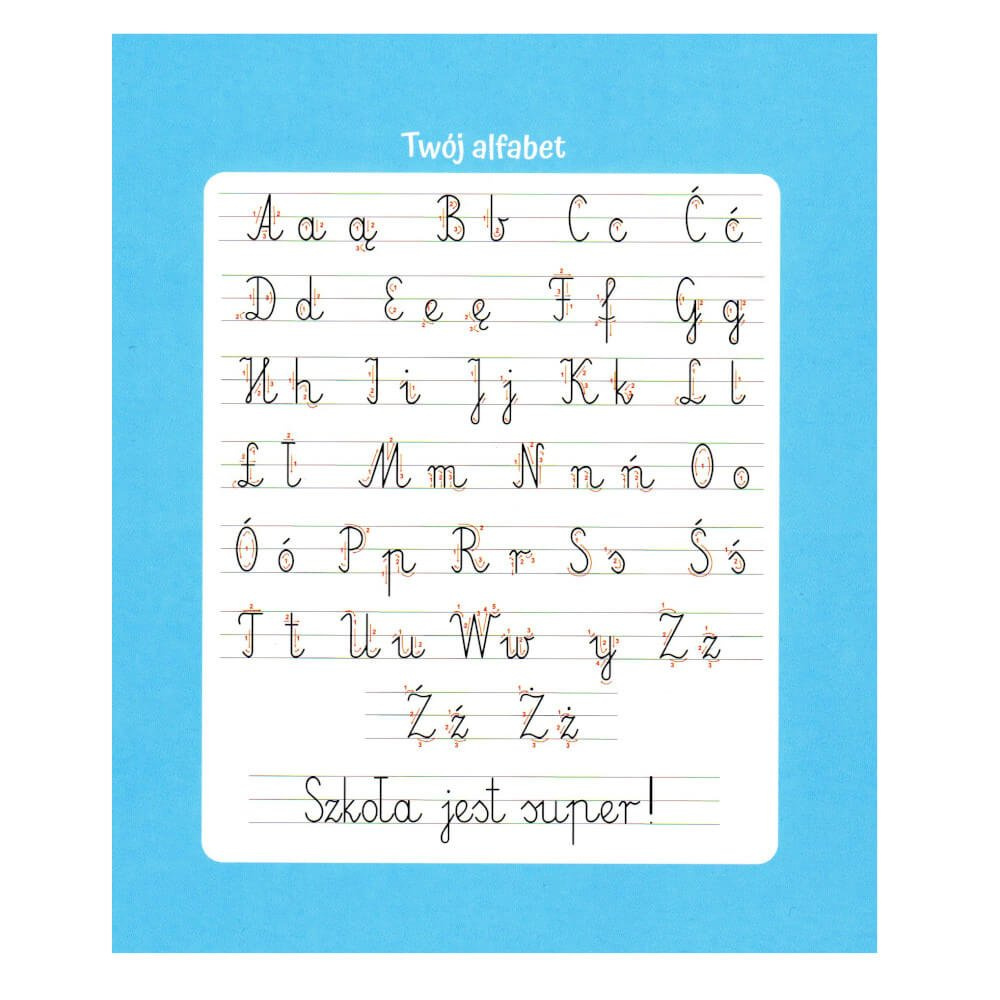 Twój alfabet
A a ą B b C c Ć ć
D d E e ę F f G g
H h I i J j K k L l
Ł ł M m N n ń O o
Ó ó P p R r S s Ś ś
T t U u W w y Z z
Ź ź Ż ż
Szkoła jest super!